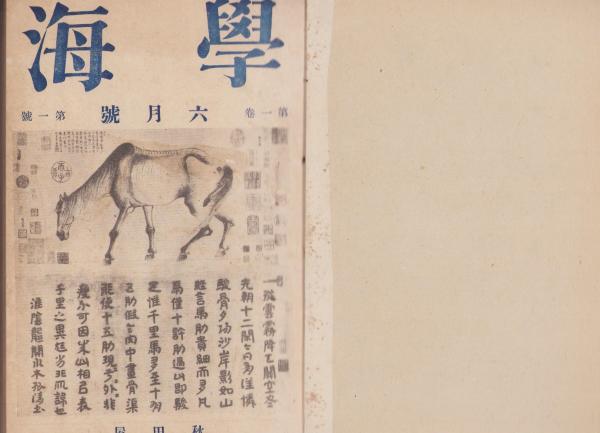 學海
第一卷 六月號 第一號
一從雲霧降天關空盡
先朝十二閑今日有誰憐
駿骨夕陽沙岸影如山
經言馬肋貴細而多凡
馬僅十許肋過此即駿
足惟千里馬多至十有
五肋假令肉中畫骨渠
能使十五肋現於外非
瘦不可因成此相以表
千里之異尪劣非所諱也
淮陰龔開水木孤清書
秋田屋